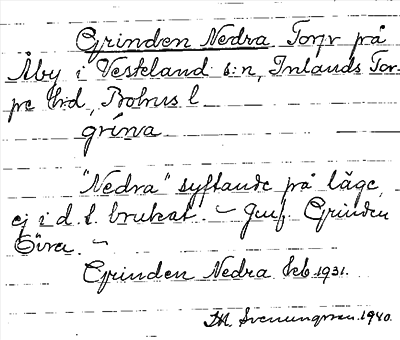 Grinden Nedra Torp på
Åby i Vesteland s:n, Inlands Tor-
pe hd, Bohus l
grína
"Nedra" syftande på läge,
ej i d. l. brukat. – Jmf. Grinden
Övra. –
Grinden Nedra Jeb 1931.
M. Svenungsson. 1940.